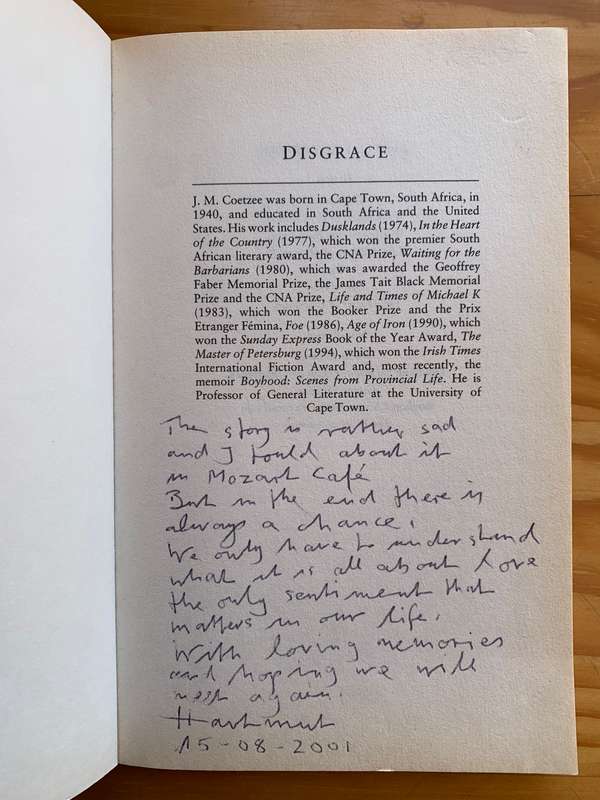 DISGRACE
J. M. Coetzee was born in Cape Town, South Africa, in
1940, and educated in South Africa and the United
States. His work includes Dusklands (1974), In the Heart
of the Country (1977), which won the premier South
African literary award, the CNA Prize, Waiting for the
Barbarians (1980), which was awarded the Geoffrey
Faber Memorial Prize, the James Tait Black Memorial
Prize and the CNA Prize, Life and Times of Michael K
(1983), which won the Booker Prize and the Prix
Etranger Fémina, Foe (1986), Age of Iron (1990), which
won the Sunday Express Book of the Year Award, The
Master of Petersburg (1994), which won the Irish Times
International Fiction Award and, most recently, the
memoir Boyhood: Scenes from Provincial Life. He is
Professor of General Literature at the University of
Cape Town.
The story is rather sad
and I tould about it
in Mozart Café
But in the end there is
always a chance.
We only have to understand
what it is all about Love
the only sentiment that
matters in our life.
With loving memories
and hoping we will
meet again.
Hartmut
15-08-2001